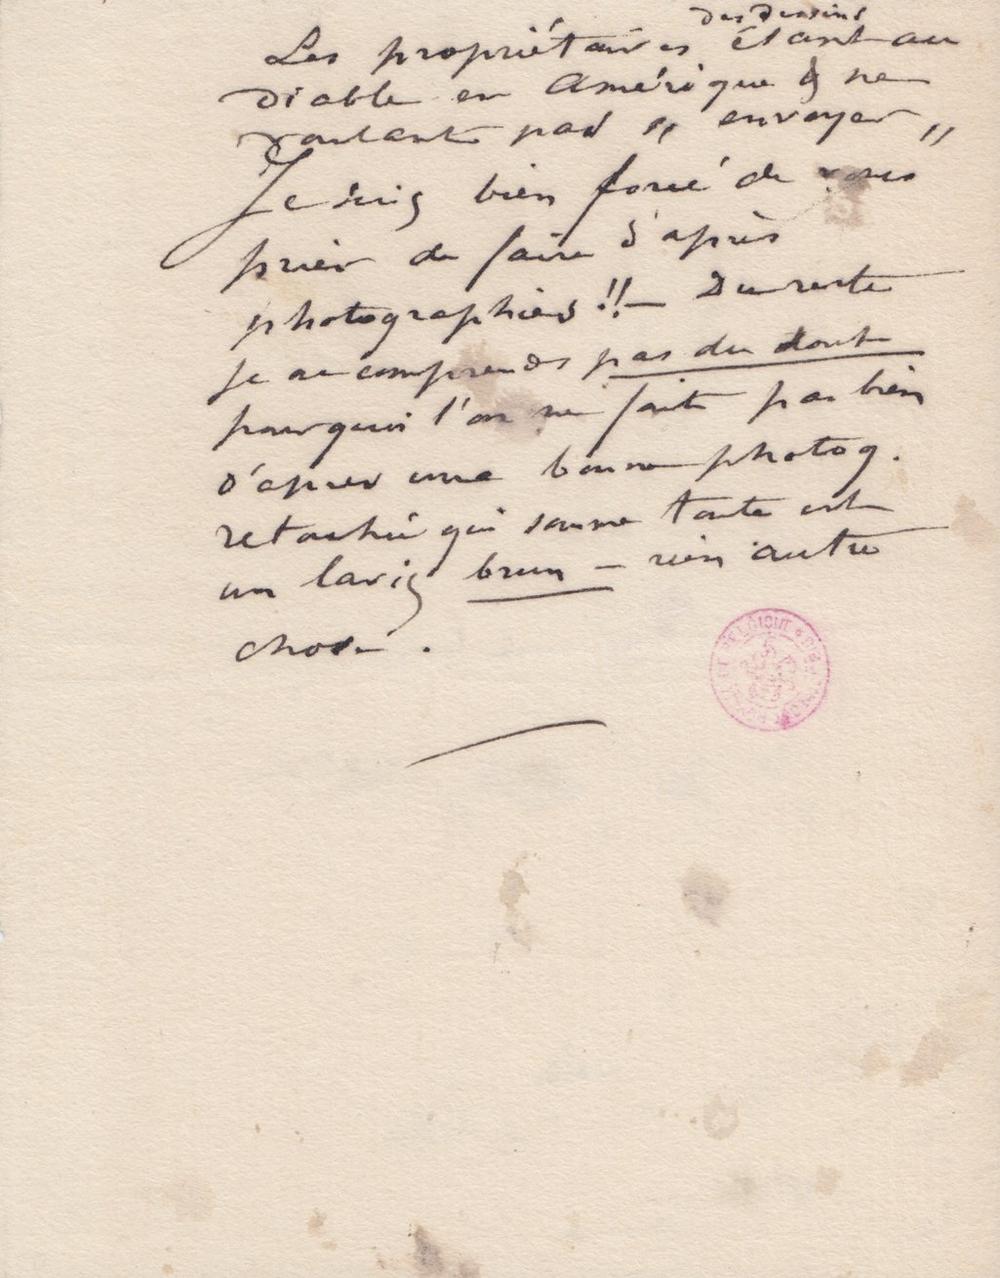 des dessins
Les propriétaires étant au
Diable en Amérique & ne
voulant pas "envoyer"
Je suis bien forcé de vous
prier de faire d'après
photographies!!— Du reste
je ne comprends pas du tout
pourquoi l'on ne fait pas bien
d'après une bonne photog.
retouchée qui somme toute est
un lavis brun — rien autre
chose.
DE BELGIQUE